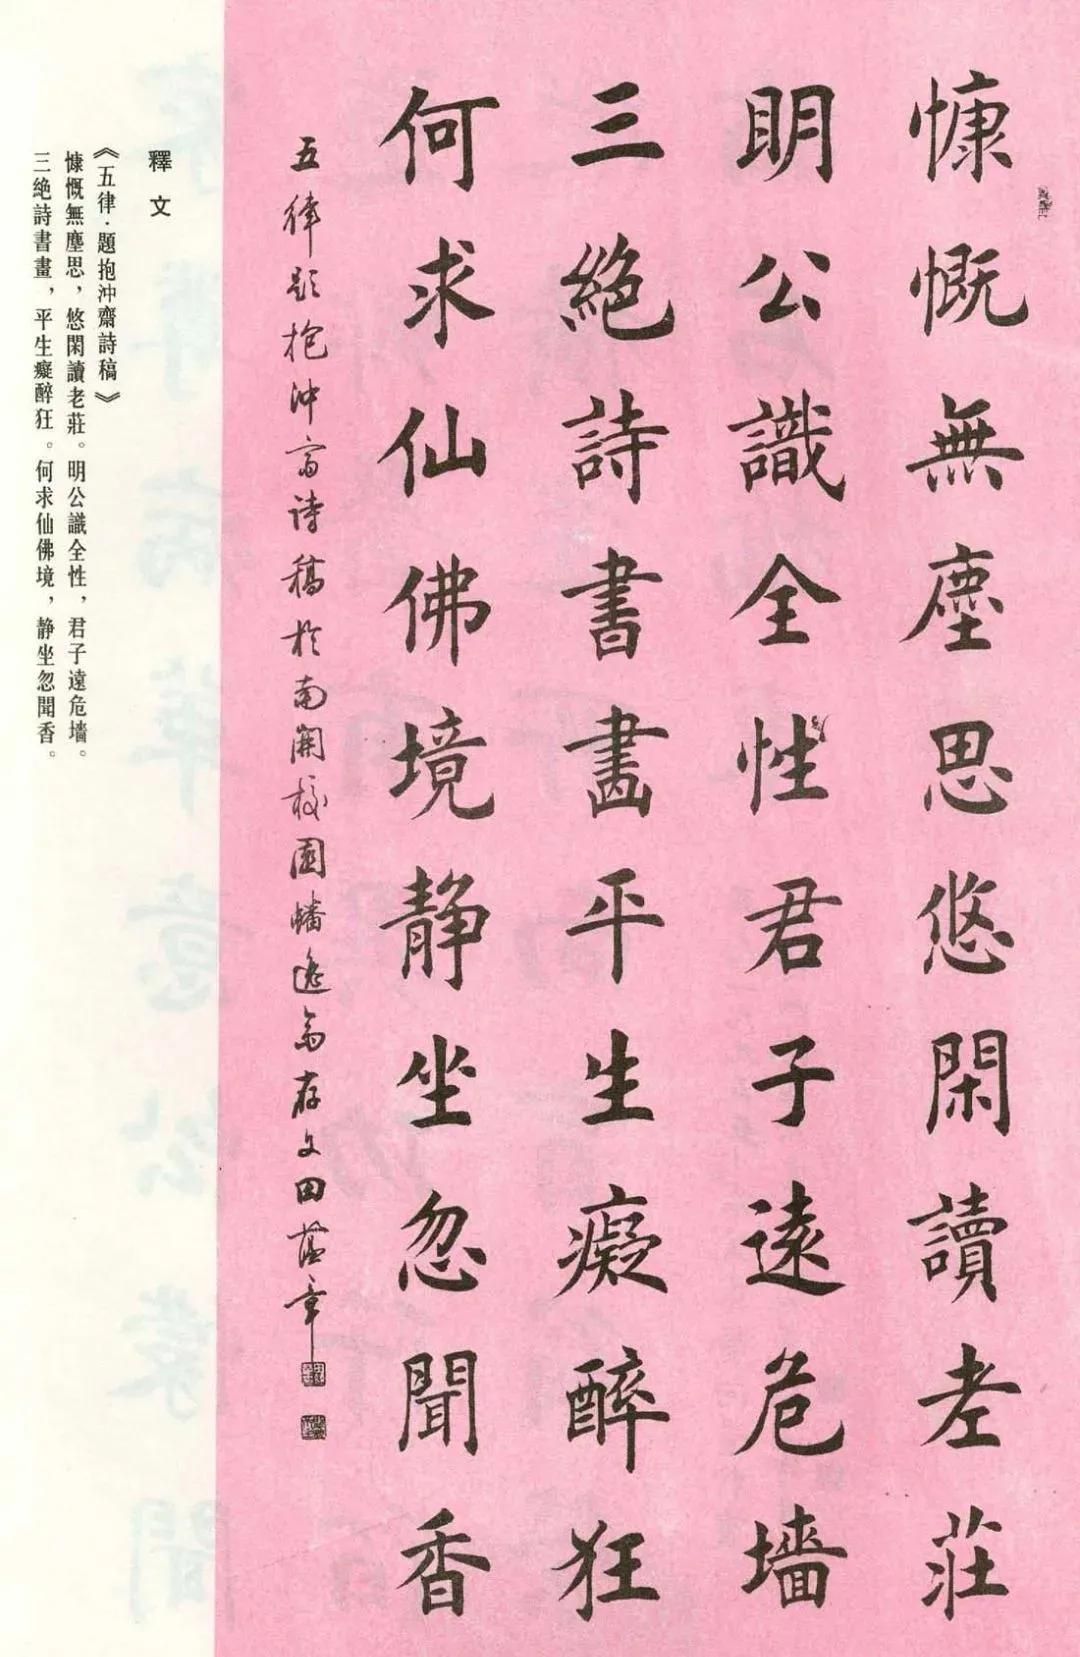 慷慨無塵思悠閑讀老莊
明公識全性君子遠危墻
三絕詩書畫平生癡醉狂
何求仙佛境靜坐忽聞香
五律题抱沖斋诗稿於南開校園蟠逸斋存文田蘊章
釋文
《五律·題抱沖齋詩稿》
慷慨無塵思，悠閑讀老莊。明公識全性，君子遠危墻。
三絶詩書畫，平生癡醉狂。何求仙佛境，静坐忽聞香。